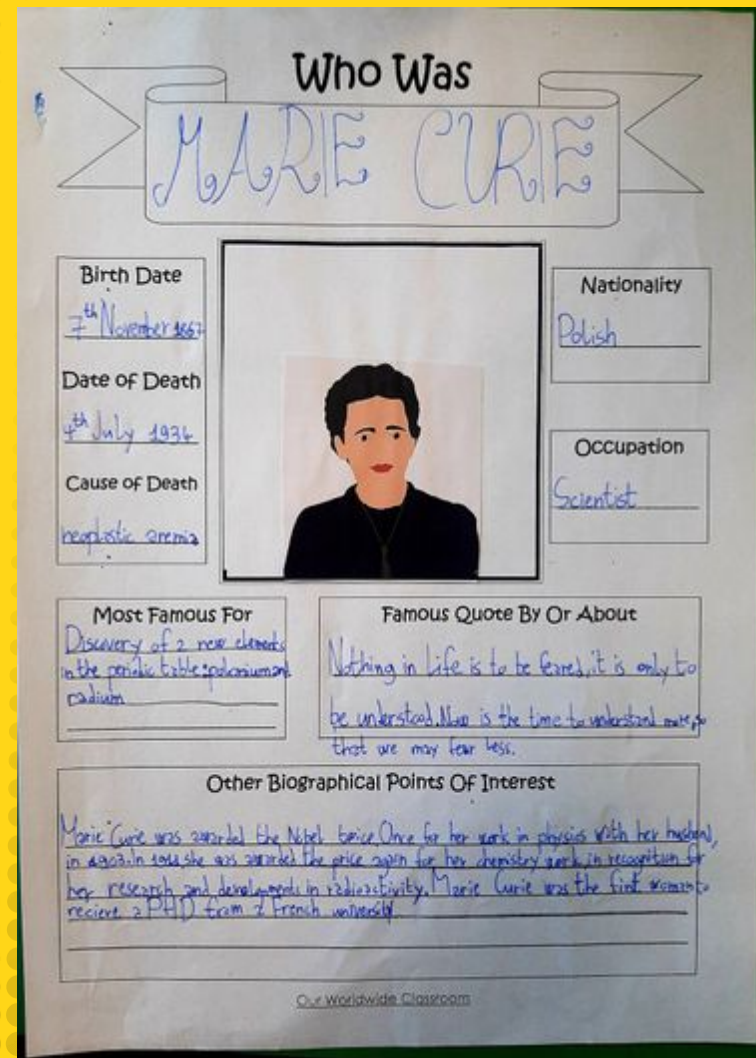 Who Was
MARIE CURIE
Birth Date
7th November 1867
Date of Death
4th July 1934
Cause of Death
neoplastic anemia
Nationality
Polish
Occupation
Scientist
Most Famous For
Discovery of 2 new elements
in the periodic table: polonium and
radium
Famous Quote By Or About
Nothing in Life is to be feared, it is only to
be understood. Now is the time to understand more, so
that we may fear less.
Other Biographical Points Of Interest
Marie Curie was awarded the Nobel twice. Once for her work in physics with her husband,
in 1903. In 1911 she was awarded the price again for her chemistry work, in recognition for
her research and developments in radioactivity. Marie Curie was the first woman to
recieve a PHD from a French university
Our Worldwide Classroom